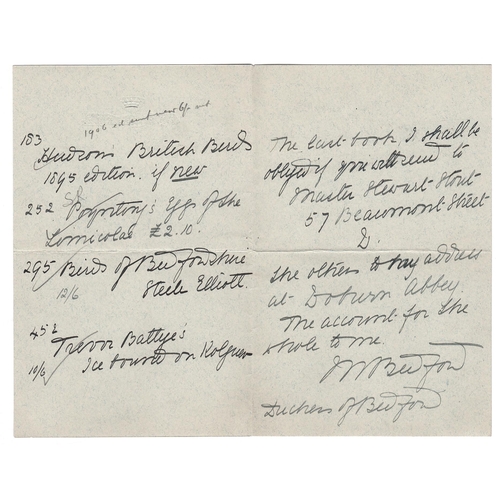 1906 ed
183
Hudson's British Birds
1895 edition. if new
252 Poynting's Eggs of the
Limicolae £2.10.
295 Birds of Bedfordshire
12/6 Steele Elliott.
452
Trevor Battye's
10/6 Ice bound on Kolguev
The last book I shall be
obliged if you will send to
Master Stewart Stout
57 Beaumont Street
The others to my address
at Woburn Abbey.
The account for the
whole to me.
M Bedford
Duchess of Bedford